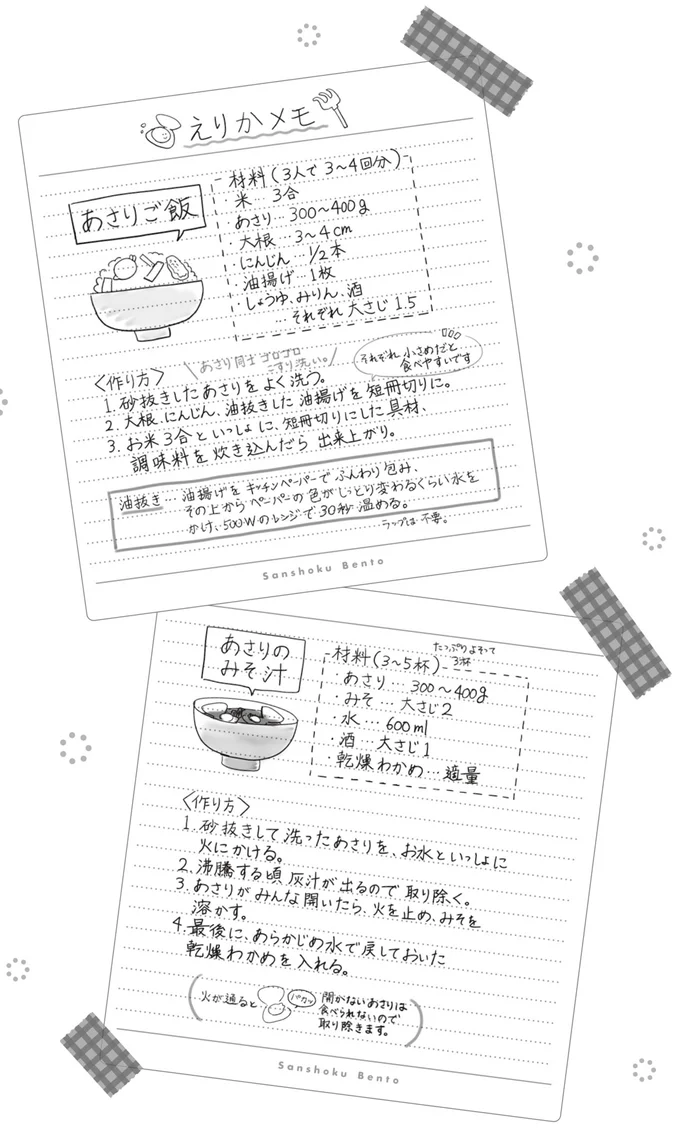 えりかメモ
あさりご飯
材料(3人で3〜4回分)
米…3合
あさり…300〜400g
・大根…3〜4cm
・にんじん…1/2本
・油揚げ…1枚
しょうゆ、みりん、酒
…それぞれ大さじ1.5
〈作り方〉
あさり同士ゴロゴロ
こすり洗い。
それぞれ小さめだと
食べやすいです
1. 砂抜きしたあさりをよく洗う。
2. 大根、にんじん、油抜きした油揚げを短冊切りに。
3. お米3合といっしょに、短冊切りにした具材、
調味料を炊き込んだら出来上がり。
油抜き…油揚げをキッチンペーパーでふんわり包み、
その上からペーパーの色がしっとり変わるくらい水を
かけ、500Wのレンジで30秒温める。
ラップは不要。
Sanshoku Bento
あさりの
みそ汁
材料(3〜5杯)
たっぷりよそって
3杯
あさり…300〜400g
・みそ…大さじ2
・水…600ml
・酒…大さじ1
・乾燥わかめ…適量
〈作り方〉
1. 砂抜きして洗ったあさりを、お水といっしょに
火にかける。
2. 沸騰する頃灰汁が出るので取り除く。
3. あさりがみんな開いたら、火を止め、みそを
溶かす。
4. 最後に、あらかじめ水で戻しておいた
乾燥わかめを入れる。
火が通ると
パカッ
開かないあさりは
食べられないので
取り除きます。
Sanshoku Bento